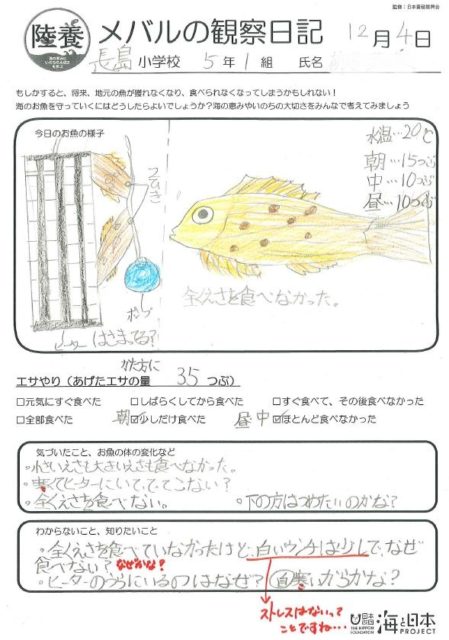 監修：日本養殖振興会
陸養
メバルの観察日記
12月4日
長島小学校 5年1組 氏名
もしかすると、将来、地元の魚が獲れなくなり、食べられなくなってしまうかもしれない！
海のお魚を守っていくにはどうしたらよいでしょうか？海の恵みやいのちの大切さをみんなで考えてみましょう
今日のお魚の様子
水温…20℃
朝…15つぶ
中…10つぶ
昼…10つぶ
ポンプ
全くえさを食べなかった。
ヒーター はさまってる？
エサやり（あげたエサの量 35 つぶ）
□元気にすぐ食べた □しばらくしてから食べた □すぐ食べて、その後食べなかった
□全部食べた 朝☑少しだけ食べた 昼 中 ☑ほとんど食べなかった
気づいたこと、お魚の体の変化など
・小さいえさも大きいえさも食べなかった。
ヒーターにいて、でてこない？
・全くえさを食べない。 ・下の方はつめたいのかな？
わからないこと、知りたいこと
・全くえさを食べていなかったけど、白いウンチは少しで、なぜ
食べない？なぜかな？
・ヒーターのうらにいるのはなぜ？ 暑いからかな？
ストレスはないって
ことですね…
日本財団
THE NIPPON FOUNDATION
海と日本
PROJECT